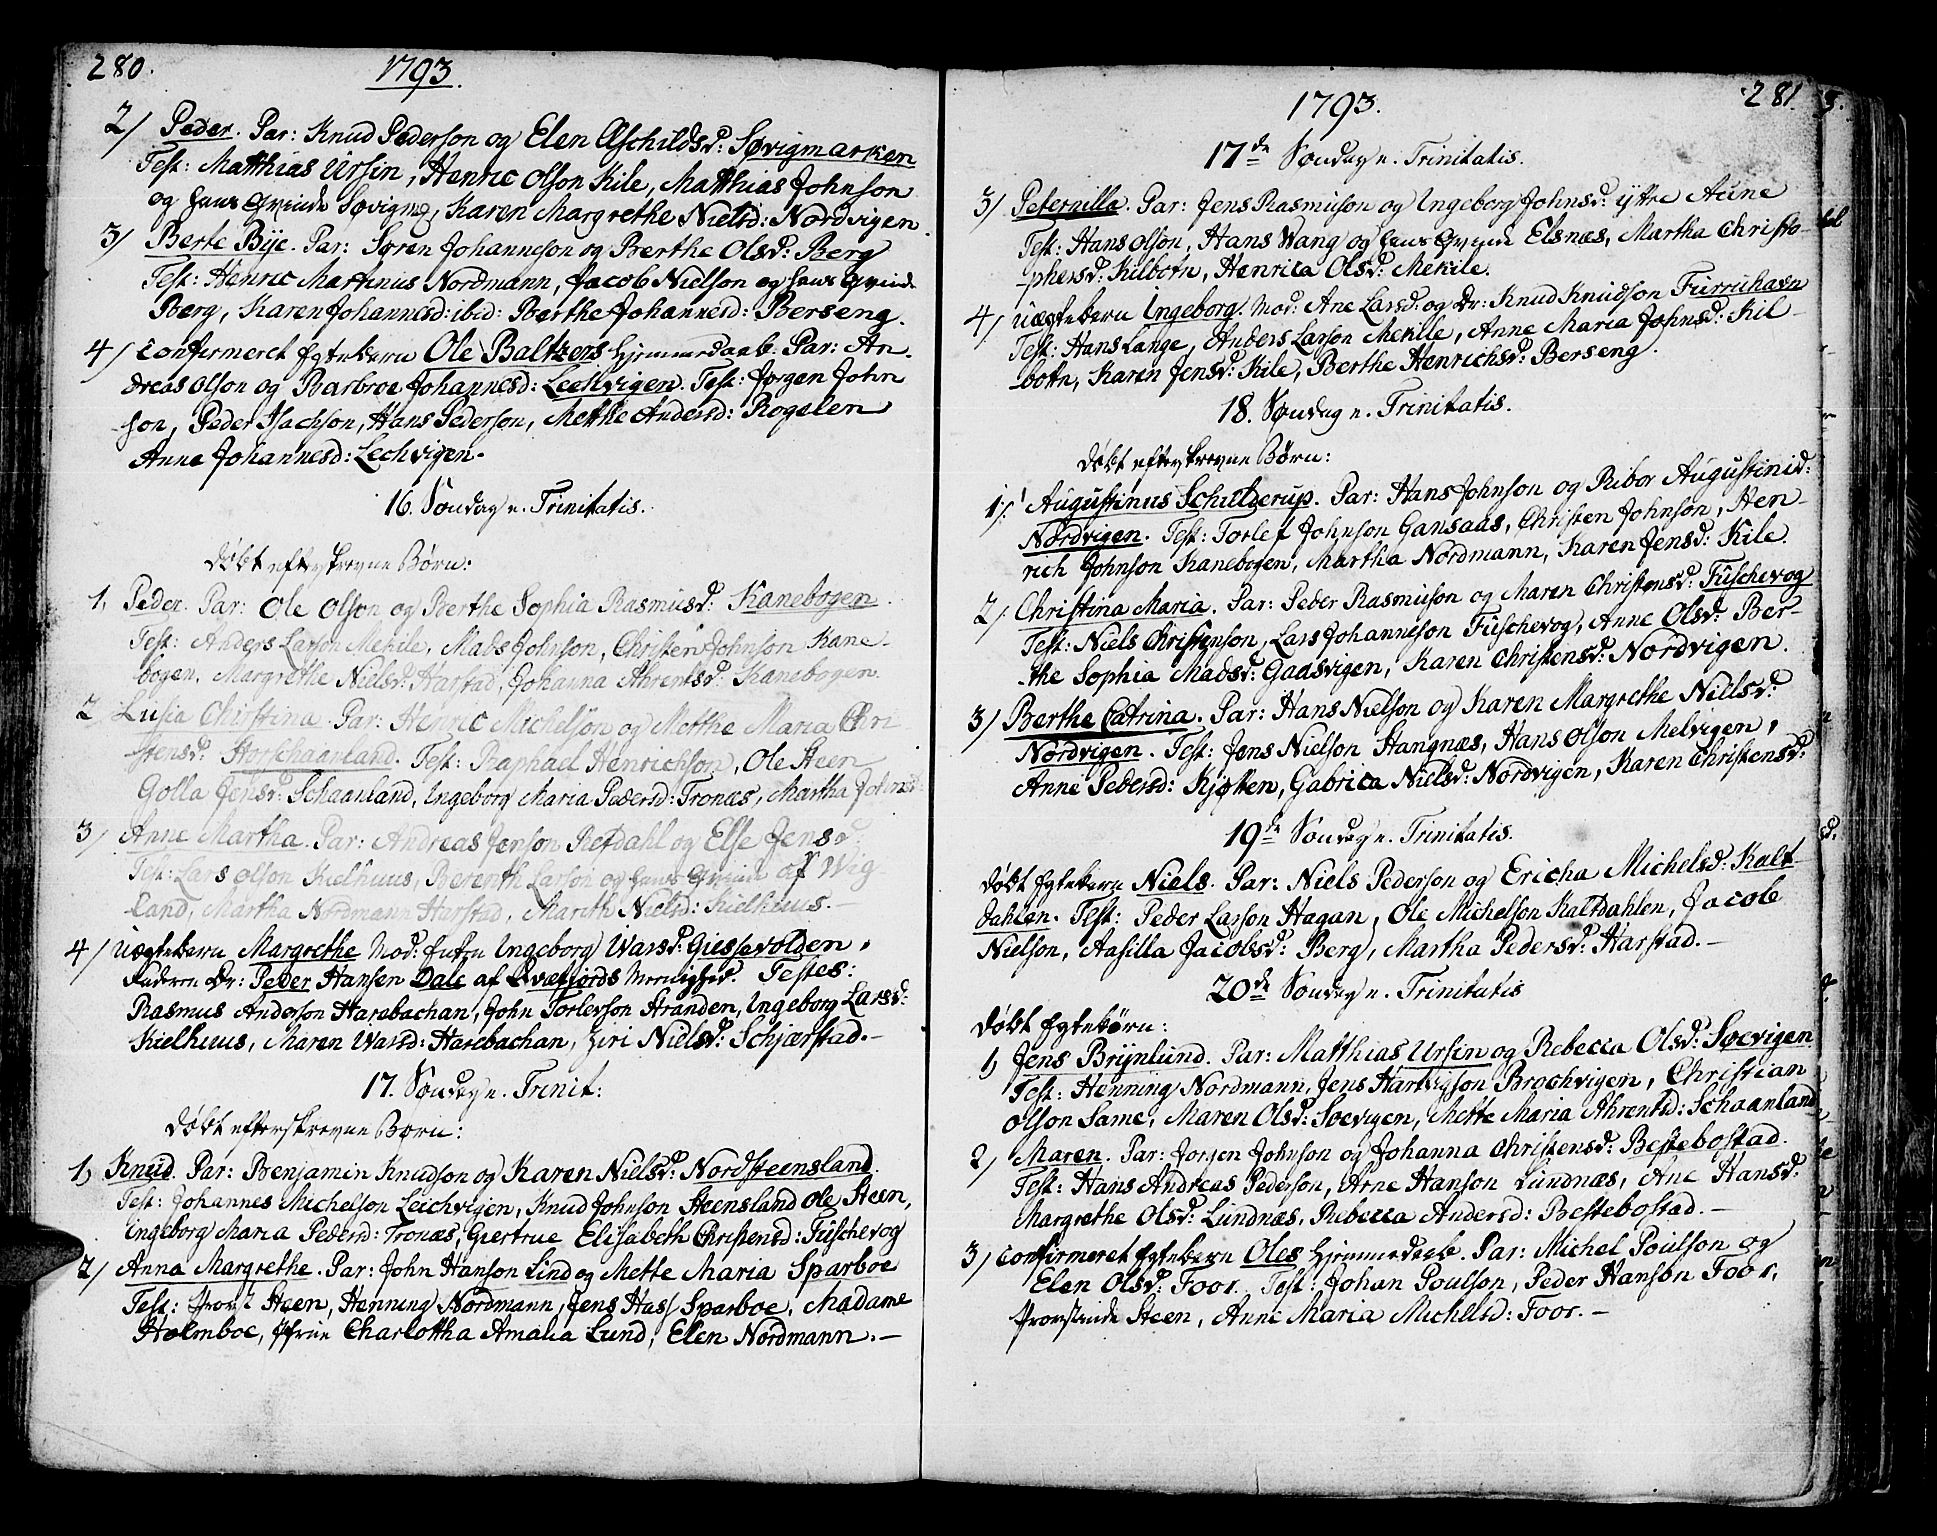 280.
1793.
2/ Peder. Par: Knud Pederson og Elen Aschildsd: Søvigmarken
Test: Matthias Ursin, Henric Olson Kile, Matthias Johnson
og hans Qvinde Søvigen, Karen Margrethe Nielsd: Nordvigen.
3/ Berte Bye. Par: Søren Johanneson og Berthe Olsd: Berg
Test: Henric Martinus Nordmann, Jacob Nielson og hans Qvinde
Berg, Karen Johannesd: ibid: Berthe Johannesd: Berseng.
4/ Confirmeret Egtebarn Ole Baltzers Hjemmedaab. Par: An-
dreas Olson og Barbroe Johannesd: Lechvigen. Test: Jørgen John
son, Peder Isachson, Hans Pederson, Mette Andersd: Rogelen
Anne Johannesd: Lechvigen.
16. Søndag n. Trinitatis.
døbt efterskrevne Børn:
1, Peder. Par: Ole Olson og Berthe Sophia Rasmusd: Kanebogen.
Test: Anders Larson Mekile, Mads Johnson, Christen Johnson Kane-
bogen, Margrethe Nielsd: Harstad, Johanna Ahrentsd: Kanebogen.
2 Lusia Christina. Par: Henric Michelson og Metthe Maria Chri
stensd: Storschaanland. Test: Raphael Henrichson, Ole Steen
Golla Jensd: Schaanland, Ingeborg Maria Pedersd: Tronæs, Martha Johnsd:
3/ Anne Martha. Par: Andreas Jenson Refdahl og Else Jensd:
Test: Lars Olson Kielhuus, Berenth Larson og hans Qvinde af Wig
land, Martha Nordmann Harstad, Marith Nielsd: Kielhuus.-
4/ Uægtebarn Margrethe Mod: Enken Ingeborg Iварsd: Giessevolden,
Faderen Dr: Peder Hansen Dale af Qvæfjords Menighed. Testes:
Rasmus Anderson Harebachan, John Torlevson Stranden, Ingeborg Larsd:
Kielhuus, Maren Ivarsd: Harebachan, Ziri Nielsd: Schjærstad.-
17. Søndag n. Trinit:
døbt efterskrevne Børn:
1, Knud. Par: Benjamin Knudson og Karen Nielsd: Nordsteensland.
Test: Johannes Michelson Leichvigen, Knud Johnson Steensland Ole Steen,
Ingeborg Maria Pedersd: Tronæs, Giertrue Elisabeth Christensd: Fuschevog
2/ Anna Margrethe. Par: John Hanson Lind og Mette Maria Sparboe
Test: Provst Steen, Henning Nordmann, Jens Hass Sparboe, Madame
Holmboe, Jfrue Charlottha Amalia Lund, Elen Nordmann.-
281.
1793.
17de Søndag n. Trinitatis.
3/ Peternilla. Par: Jens Rasmuson og Ingeborg Johnsd: yttre Aune
Test: Hans Olson, Hans Wang og hans Qvinde Elsnæs, Martha Christo-
phersd: Kilbotn, Henrica Olsd: Mekile.
4/ Uægtebarn Ingeborg. Mod: Ane Larsd: og Dr: Knud Knudson Furruhavn
Test: Hans Lange, Anders Larson Mekile, Anne Maria Johnsd: Kil-
botn, Karen Jensd: Kile, Berthe Henrichsd: Berseng.
18. Søndag n. Trinitatis.
døbt efterskrevne Børn:
1/. Augustinus Schulderup. Par: Hans Johnson og Ribor Augustinid:
Nordvigen. Test: Torlef Johnson Gansaas, Christen Johnson, Hen-
rich Johnson Kanebogen, Martha Nordmann, Karen Jensd: Kile.
2/. Christina Maria. Par: Peder Rasmuson og Maren Christensd: Fuschevog
Test: Niels Christenson, Lars Johanneson Fuschevog, Anne Olsd: Ber-
the Sophia Madsd: Gaasvigen, Karen Christensd: Nordvigen.
3/ Berthe Catrina. Par: Hans Nielson og Karen Margrethe Nielsd:
Nordvigen. Test: Jens Nielson Stangnæs, Hans Olson Melvigen,
Anne Pedersd: Kjøtten, Gabrica Nielsd: Nordvigen, Karen Christensd:
19de Søndag n. Trinitatis.
døbt Egtebarn Niels. Par: Niels Pederson og Ericha Michelsd: Kalt-
dahlen. Test: Peder Larson Hagan, Ole Michelson Kaltdahlen, Jacob
Nielson, Aasilla Jacobsd: Berg, Martha Pedersd: Harstad.-
20de Søndag n. Trinitatis
døbt Egtebørn:
1, Jens Brynlund. Par: Matthias Ursin og Rebecca Olsd: Søevigen.
Test: Henning Nordmann, Jens Hartvigson Brochvigen, Christian
Olson Same, Maren Olsd: Soevigen, Mette Maria Ahrentsd: Schaanland
2/ Maren. Par: Jørgen Johnson og Johanna Christensd: Bestebostad.
Test: Hans Andreas Pederson, Arne Hanson Lundnæs, Ane Hansd:
Margrethe Olsd: Lundnæs, Rebecca Andersd: Bestebostad.-
3/ Confirmeret Egtebarn Oles Hjemmedaab. Par: Michel Poulson og
Elen Olsd: Foor. Test: Johan Poulson, Peder Hanson Foor,
Provstinde Steen, Anne Maria Michelsd: Foor.-